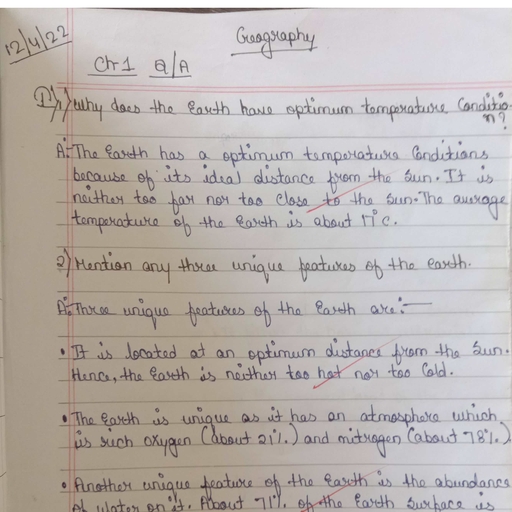 12/4/22
Geography
Ch 1 Q/A
I) 1) Why does the Earth have optimum temperature Conditio-
n?
A:- The Earth has a optimum temperature Conditions
because of its ideal distance from the Sun. It is
neither too far nor too close to the Sun. The average
temperature of the Earth is about 17°c.
2) Mention any three unique features of the earth.
A:- Three unique features of the Earth are:-
• It is located at an optimum distance from the Sun.
Hence, the Earth is neither too hot nor too Cold.
• The Earth is unique as it has an atmosphere which
is rich oxygen (about 21%.) and nitrogen (about 78%.)
• Another unique feature of the Earth is the abundance
of water on it. About 71%. of the Earth surface is